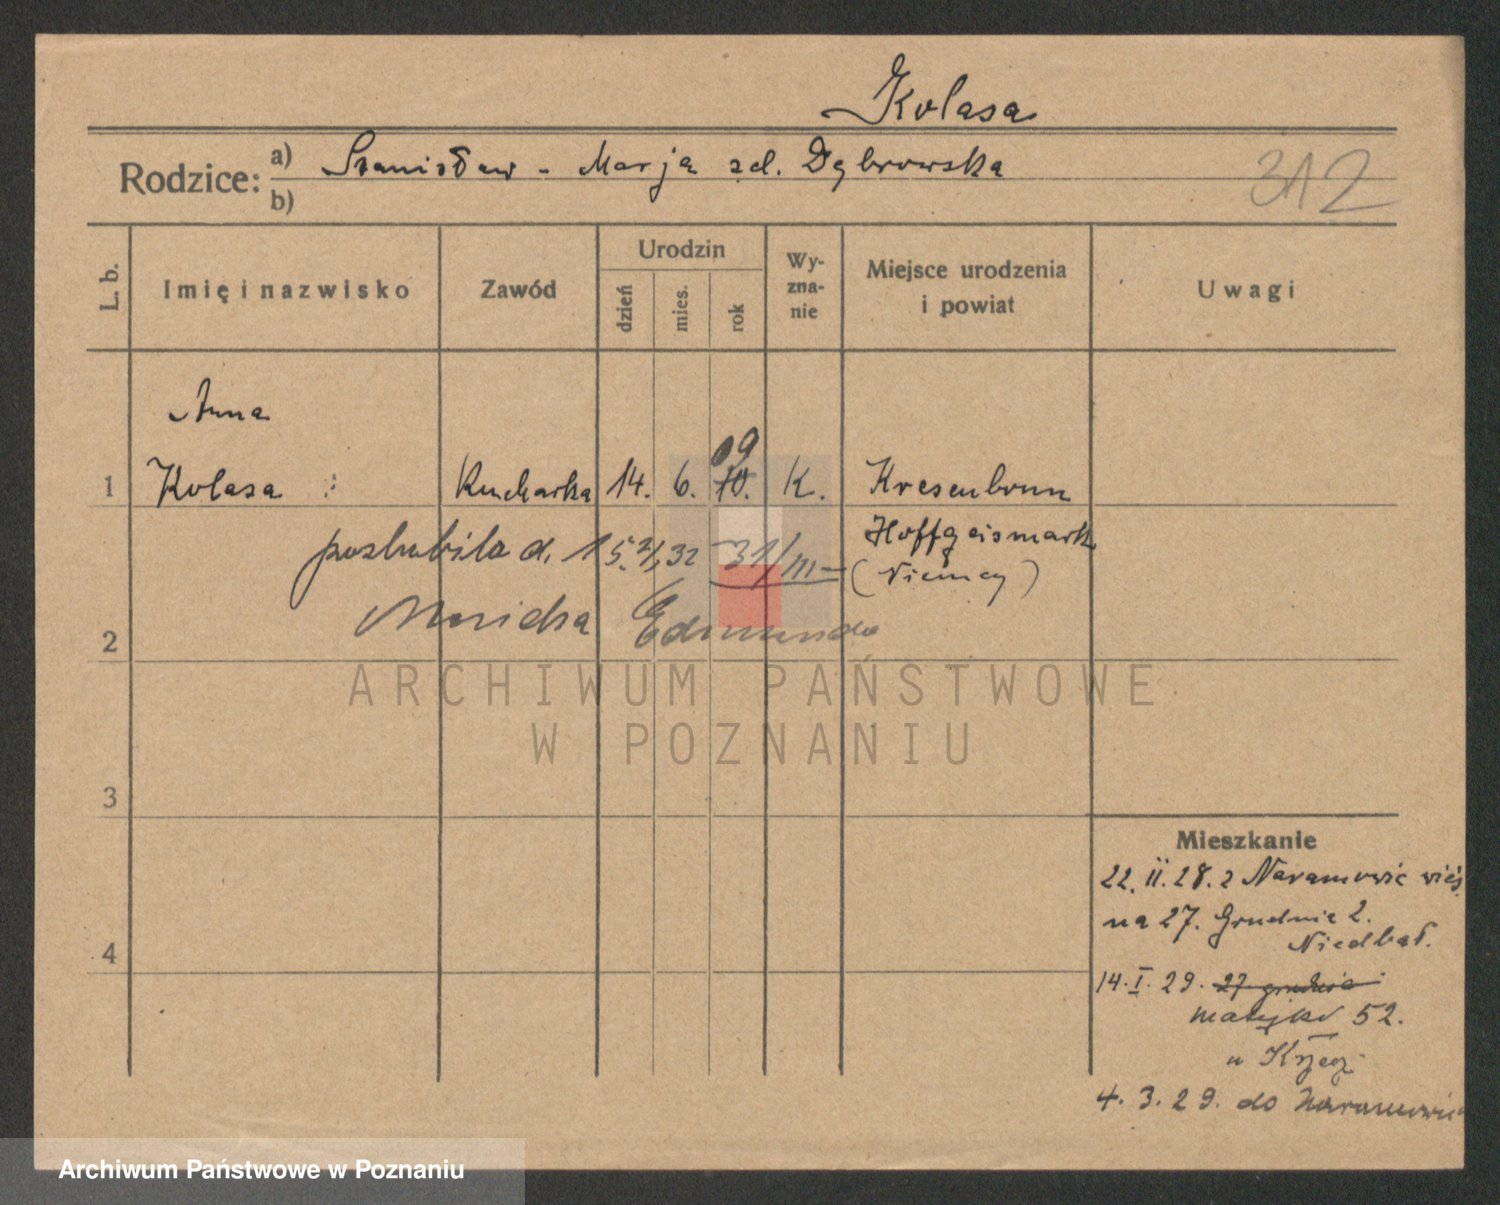 Kolasa
Rodzice: a) Stanisław - Marja zd. Dąbrowska
b)
312
L. b.
Imię i nazwisko
Zawód
Urodzin
dzień
mies.
rok
Wy-
zna-
nie
Miejsce urodzenia
i powiat
Uwagi
Anna
09
1 Kolasa Kucharka 14. 6. 10. K. Kresenbrunn
Hoffgeismark
poślubiła d. 31/III
(Niemcy)
2 Edmunda
ARCHIWUM PAŃSTWOWE
W POZNANIU
3
Mieszkanie
22. II. 28. z Naramowic wieś
na 27. Grudnia 2.
Niedbał.
4
14. I. 29. 27 grudnia
Matejki 52.
u
4. 3. 29. do Naramowic
Archiwum Państwowe w Poznaniu